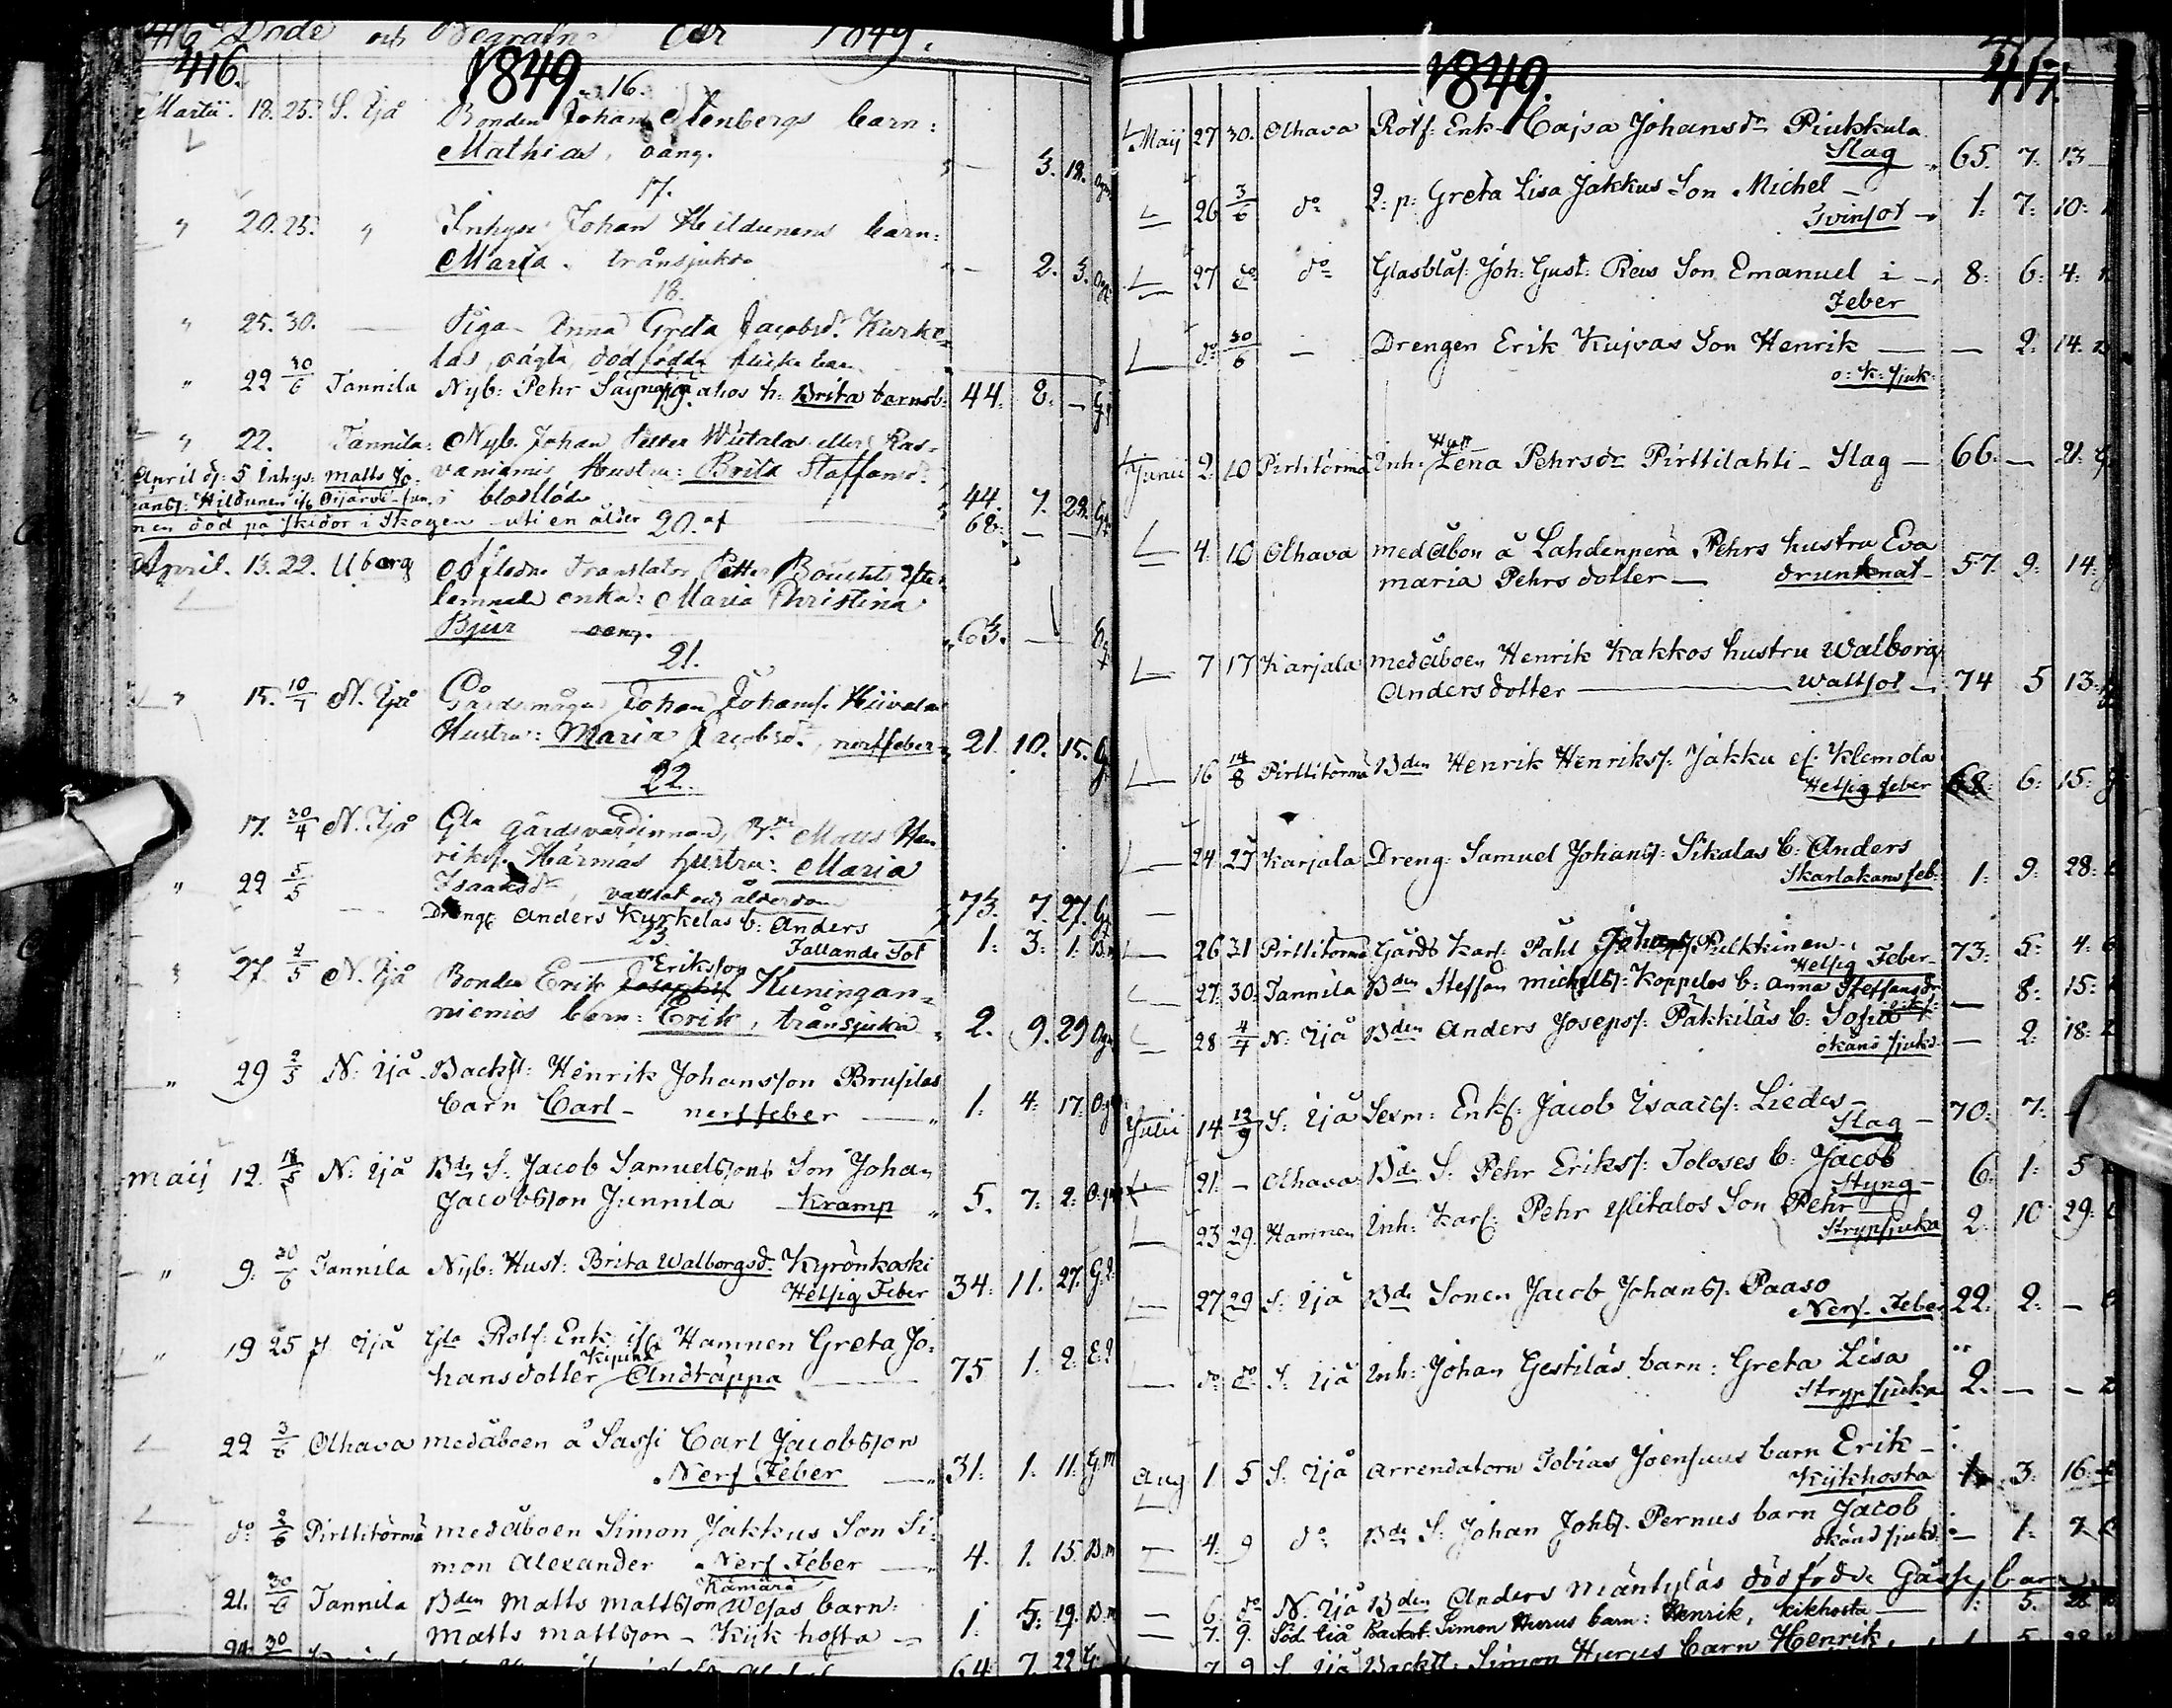 416 Döde och Begrafne År 1849.
416. 1849
16.
Martii. 18. 25. S. Ijå Bonden Johan Stenbergs barn:
Mathias, oang. — 3. 18.
17.
" 20. 25. " Inhyse Johan Hildunens barn:
Maria, trånsjuka — 2. 3.
18.
" 25. 30. — Pigan Anna Greta Jacobsdr. Kurke-
las, oägta dödfödda flicke barn
" 22 30/6 Tannila Nyb: Pehr h: Brita barnsb: 44. 8. —
" 22. Tannila: Nyb. Johan Petter Wiitalas eller Kas-
vaniemis Hustru: Brita Staffansd.
blodflöde 44. 7. 29.
April d. 5 Inhys: Matts Jo-
hanss: Hildunen ifr Oijärvi fun-
nen död på skidor i Skogen uti en ålder 20. af 68. — —
April. 13. 22. Uborg Afledne Translator Petter efter-
lemnade enka: Maria Christina
Bjur oang. 63. —
21.
" 15. 10/7 N. Ijå Gårdsmågen Johan Johanss. Hiivalas
Hustru: Maria Jacobsd., nerffeber 21. 10. 15.
22.
17. 30/4 N. Ijå Gla gårdsvärdinnan, Matts Hen-
rikss. Härmäs hustru: Maria
Isaaksdr, vattsot och ålderdom 73. 7. 27.
" 22 5/5 — Dreng: Anders Kurkelas b: Anders
Fallande Sot 1. 3: 1.
23.
" 27. 2/5 N. Ijå Bonden Erik Eriksson Kuningan-
niemis barn: Erik, trånsjuka 2. 9. 29
" 29 2/5 N: Ijå Backst: Henrik Johansson Brusilas
barn Carl - nerffeber 1. 4: 17.
Maij 12. 18/5 N: Ijå Bde S: Jacob Samuelssons Son Johan
Jacobsson Junnila Kramp 5. 7: 2:
" 9. 30/6 Tannila Nyb: Hust: Brita Walborgsd. Kyrönkoski
Hetsig Feber 34: 11. 27.
" 19 25 S. Ijå Gla Rotf: Enk: ifr Hamnen Greta Jo-
hansdotter Kipinä Andtäppa 75 1. 2:
22 3/6 Olhava medåboen å Sassi Carl Jacobsson
Nerf Feber 31. 1. 11.
do 3/6 Pirttitörmä medåboen Simon Jakkus Son Si-
mon Alexander Nerf Feber 4. 1. 15.
21. 30/6 Tannila Bden Matts Mattsson Kämärä Wesas barn:
Matts Mattsson - Kijk hosta 1. 5: 19.
24. 30 64 7. 22
1849. 417.
Maij 27 30. Olhava Rotf: Enk- Cajsa Johansdr Piukkula
Slag 65. 7. 13
26 3/6 do Q: p: Greta Lisa Jakkus Son Michel —
Tvinsot 1. 7: 10:
27 do do Glasblås: Joh: Gust: Reis Son Emanuel 8: 6: 4:
Feber
do 30/6 — Drengen Erik Kujvas Son Henrik — — 2. 14.
o: k: sjuk:
Junii 2 10 Pirttitörmä Inh: Hust Lena Pehrsdr Pirttilahti - Slag - 66. — 21.
4. 10 Olhava medåbon å Lahdenperä Pehrs hustru Eva
Maria Pehrsdotter — drunknat 57. 9: 14:
7 17 Karjala medåboen Henrik Kakkos hustru Walborg
Andersdotter — Wattsot 74 5 13.
16 14/8 Pirttitörmä Bden Henrik Henrikss: Jakku el: Klemola
Hetsig feber 68. 6: 15:
24. 27 Karjala Dreng: Samuel Johanss: Sikalas b: Anders
Skarlakansfeb: 1. 9: 28:
26 31 Pirttitörmä Gårds Karl Påhl Johanss Pulkkinen
Hetsig Feber 73. 5: 4:
27. 30: Tannila Bden Steffan Michelss: Koppelos b: Anna Steffansdr — 8: 15:
28 4/7 N: Ijå Bden Anders Josepss: Pakkiläs b: Sofia
okänd sjukd. — 2: 18:
Julii 14 12/9 S: Ijå Sexm: Enkl: Jacob Isaacss: Liedes -
Slag 70: 7:
21. - Olhava Bde S: Pehr Erikss: Toloses b: Jacob
Styng 6. 1: 5
23 29. Hamnen Inh: Karl: Pehr Ylitalos Son Pehr
Strypsjuka 2. 10 29:
27 29 S: Ijå Bde Sonen Jacob Johanss. Paaso
Nerf. Feber 22. 2: —
do do S: Ijå Inh: Johan Gestiläs barn: Greta Lisa
Strypsjuka 2. — —
Aug 1 5 S: Ijå Arrendatorn Tobias Joensuus barn Erik -
Kijkhosta 1. 3: 16:
4. 9 do Bde S: Johan Johss. Pernus barn Jacob
okänd sjukd: — 1. 7
6. do N. Ijå Bden Anders Mäntyläs dödfödde Gosse barn
7. 9. Söd. Iiå Backst. Simon Hurus barn: Henrik, kikhosta 1. 5. 28
7 9 S. Ijå Backst: Simon Hurus barn Henrik, 1. 5. 28